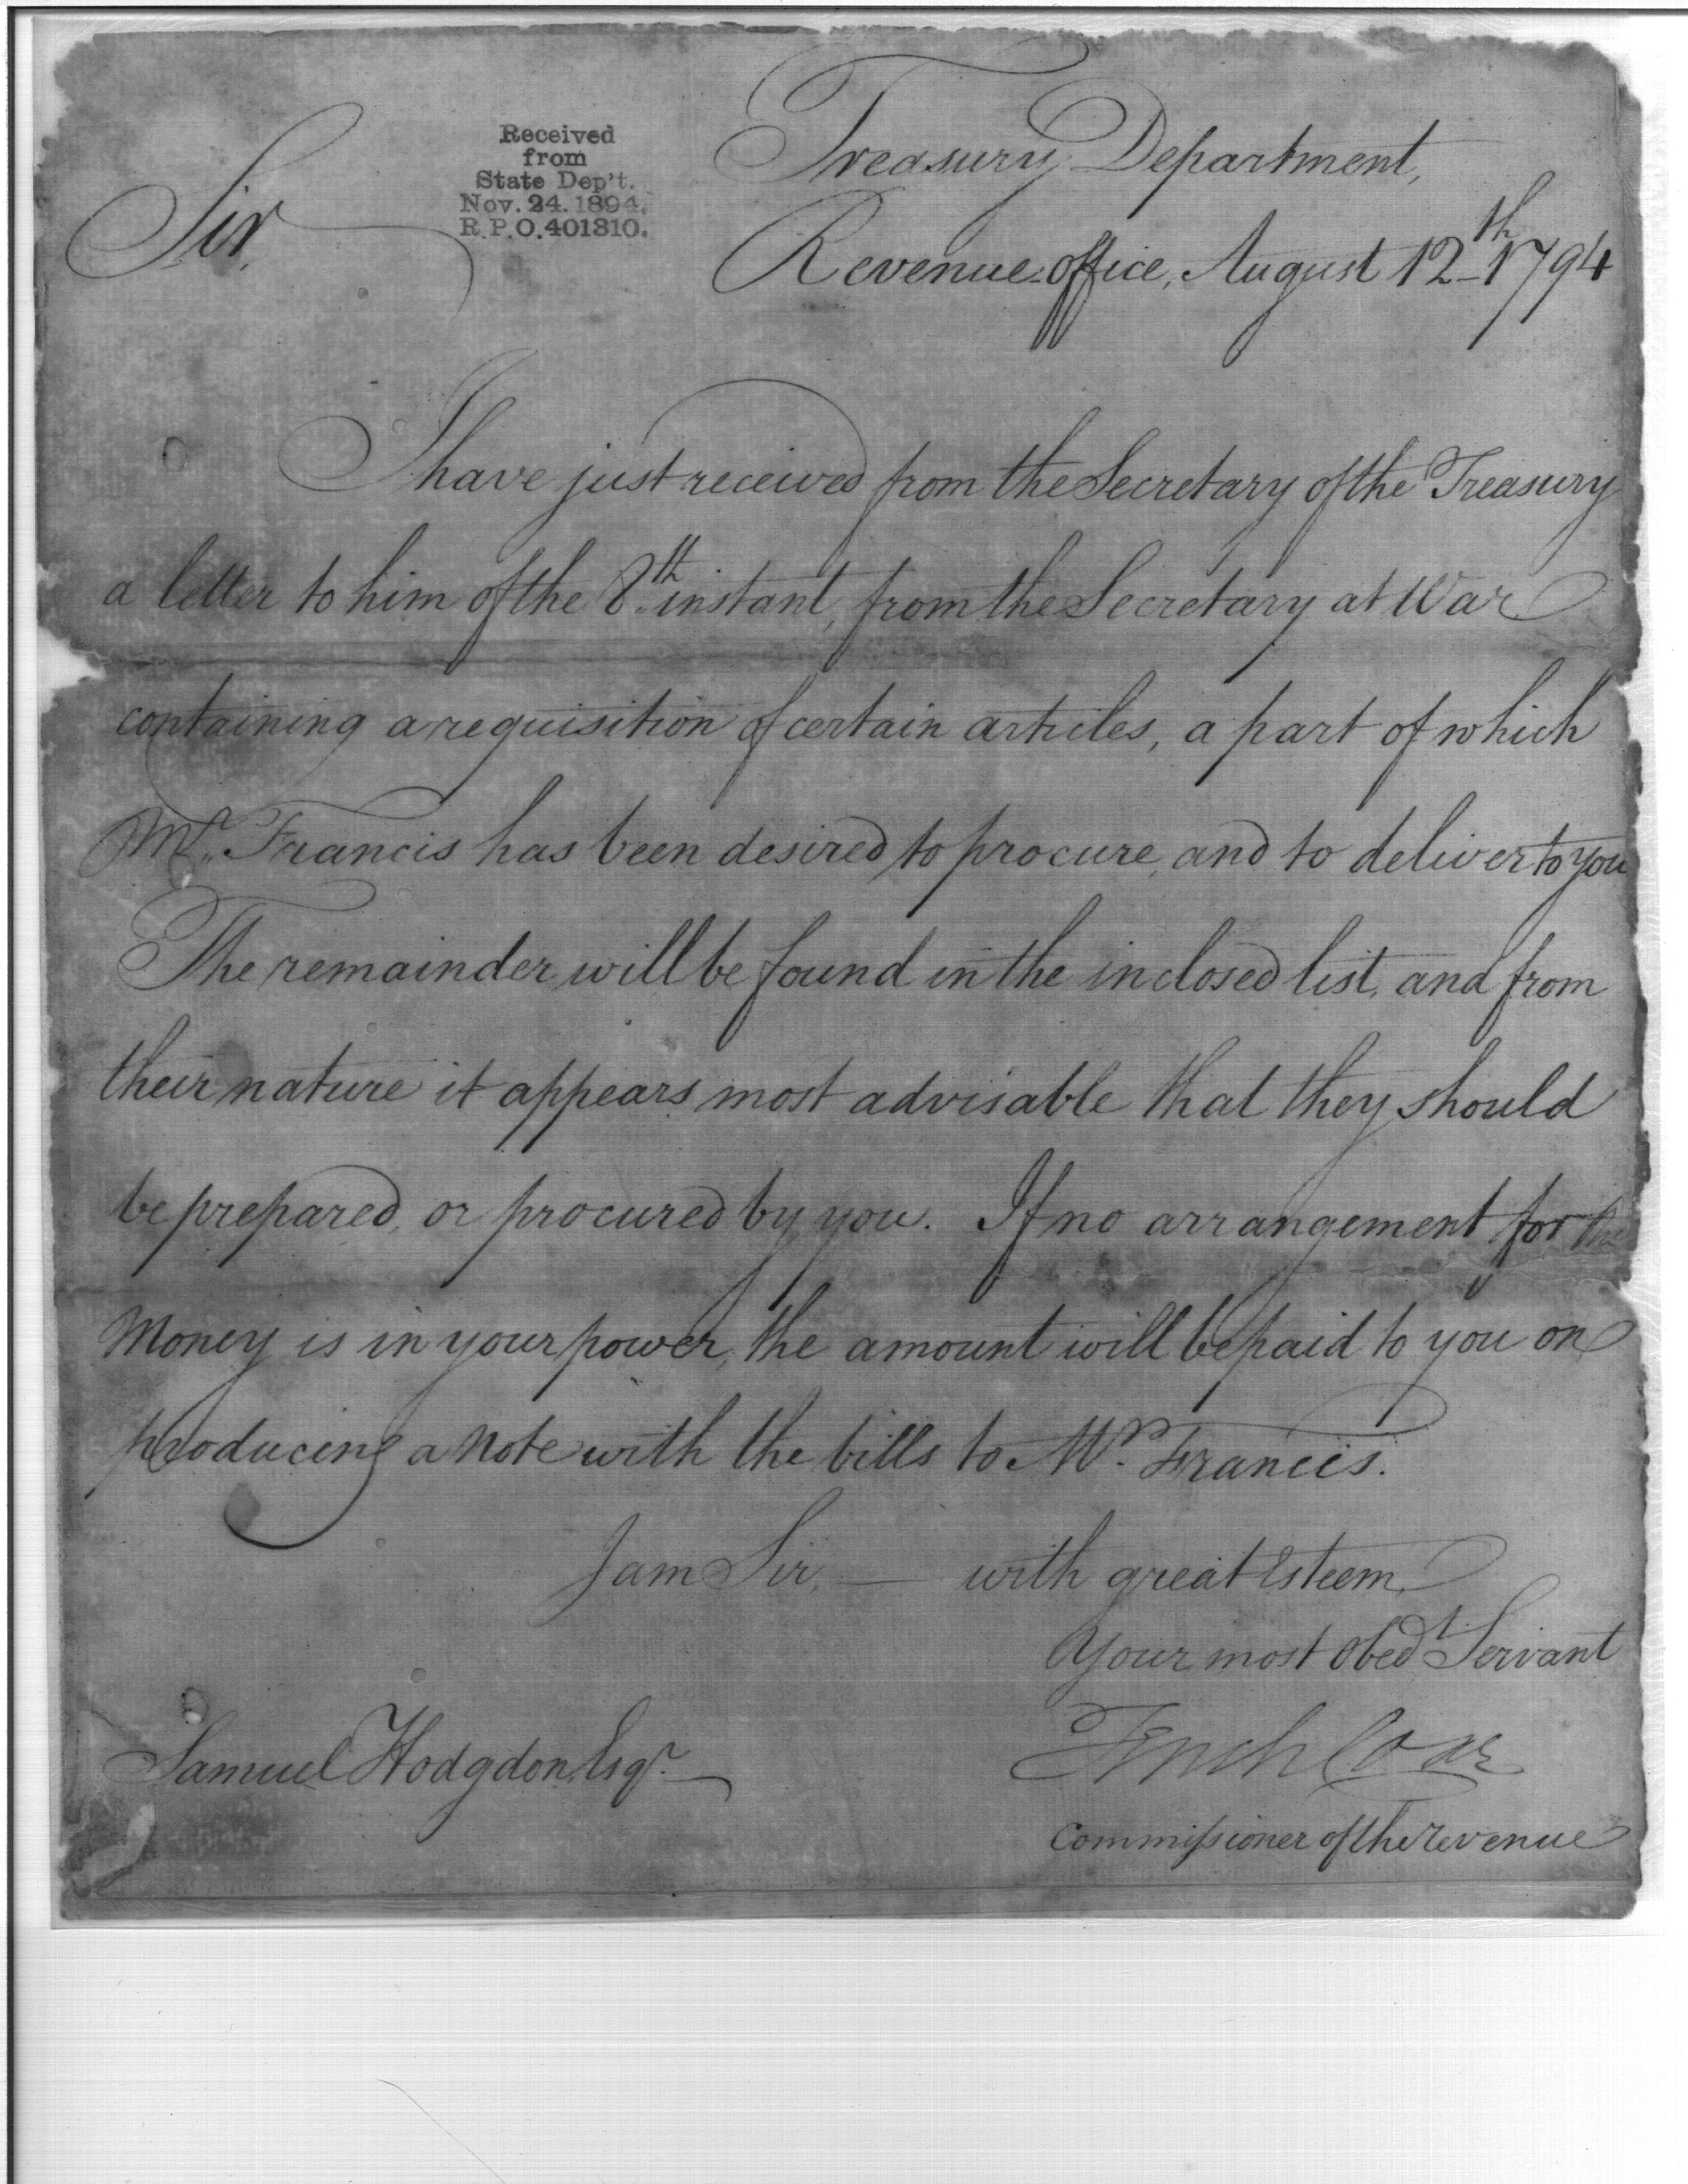 Treasury Department,
Received
from
State Dep't.
Nov. 24. 1894.
R.P.O. 401310.
Sir,
Revenue-office, August 12th 1794
I have just received from the Secretary of the Treasury
a letter to him of the 8th instant, from the Secretary at War
containing a requisition of certain articles, a part of which
Mr. Francis has been desired to procure, and to deliver to you
The remainder will be found in the inclosed list, and from
their nature it appears most advisable that they should
be prepared, or procured by you. If no arrangement for the
Money is in your power, the amount will be paid to you on
producing a Note with the bills to Mr. Francis.
I am Sir, — with great Esteem,
Your most Obedt. Servant
Tench Coxe
Samuel Hodgdon, Esqr.
Commissioner of the Revenue